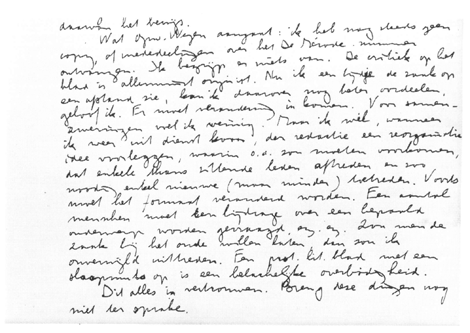 daarvan het bewijs.
Wat Opw. Wegen aangaat: ik heb nog steeds geen
copy, of mededeelingen over het De Mérode-nummer
ontvangen. Ik begrijp er niets van. De critiek op het
blad is allemaal onjuist. Nu ik een tijdje de zaak op
een afstand zie, kan ik daarover nog beter oordeelen,
geloof ik. Er moet verandering in komen. Voor samen-
zweringen voel ik weinig. Maar ik wil, wanneer
ik weer uit dienst kom, der redactie een reorganisatie
idee voorleggen, waarin o.a. zou moeten voorkomen,
dat enkele thans zittende leden aftreden en zoo
noodig enkel nieuwe (maar minder) toetreden. Voorts
moet het formaat veranderd worden. Een aantal
menschen moet een bijdrage over een bepaald
onderwerp worden gevraagd, enz. enz. Zou men de
zaak bij het oude willen laten, dan zou ik
onverwijld uittreden. Een prot. lit. blad met een
slaapmuts op is een belachelijke overbodigheid.
Dit alles in vertrouwen. Breng deze dingen nog
niet ter sprake.